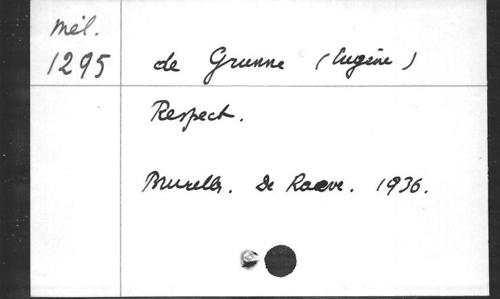 Mél.
1295
de Grunne (Eugène)
Respect.
Bruxelles. De Raeve. 1936.